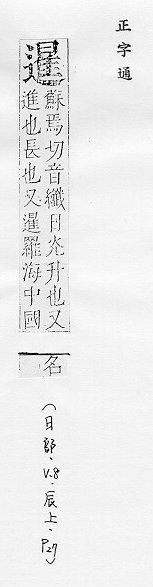 正字通
暹蘇焉切音纖日光升也又
進也長也又暹羅海中國
名
(日部、V.8、辰上、P27)